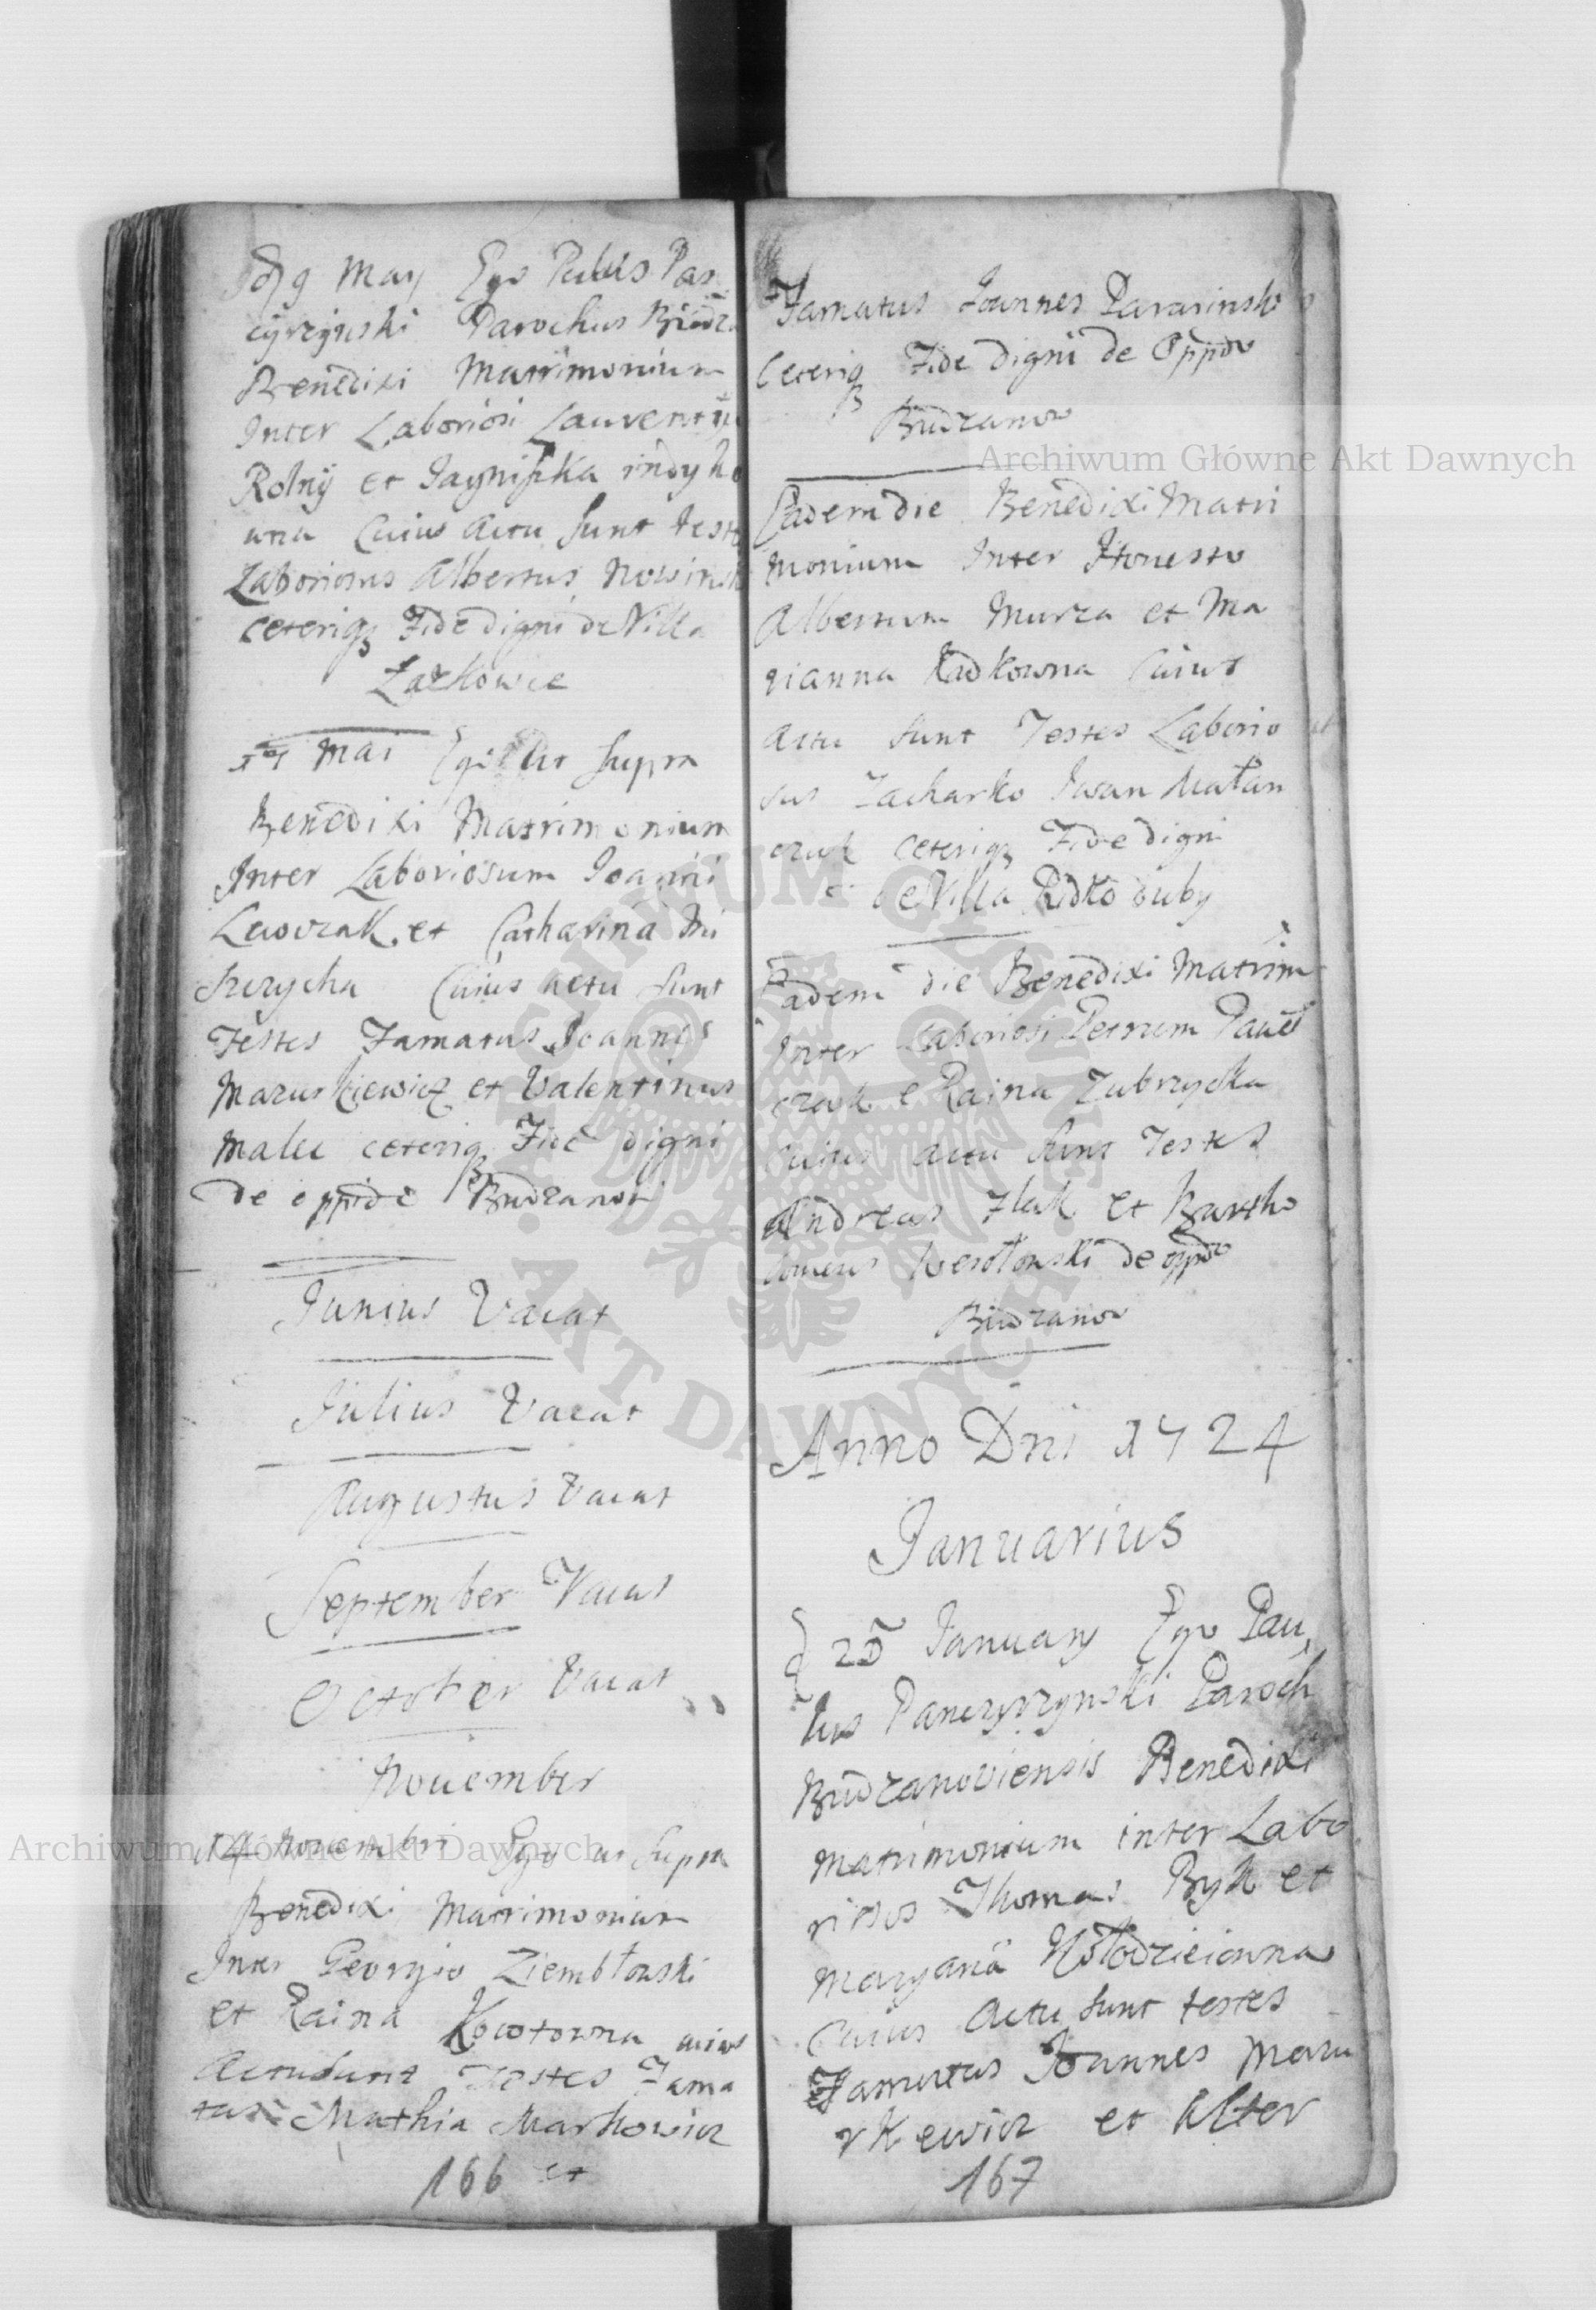 9 May Ego Paulus Pan
cyrzynski Parochus Budza
Benedixi Matrimonium
Inter Laboriosi Laurentij
Rolnij et Jagniszka indyko
wna Cuius actu sunt test
Laboriosus Albertus Nowinsk
ceteriqз Fide digni de Villa
Laskowce
Mai Ego Ut supra
Benedixi Matrimonium
Inter Laboriosum Joannii
et Catharina Mi
Cuius actu sunt
Testes Famatus Joannes
Mazurkiewicz et Valentinus
Malec ceteriqз Fide digni
de oppido Budzanov
Junius Vacat
Julius Vacat
Augustus Vacat
September Vacat
October Vacat
November
14 Novembri Ego ut supra
Benedixi Matrimonium
Inter Georgio Ziembłowski
et Raina cuius
Actu sunt Testes Fama
tus Mathia Markowicz
166 et
Famatus Joannes
Ceteriqз Fide digni de Oppdo
Budzanow
Eadem die Benedixi Matri
monium Inter Honesto
Albertum Murza et Ma
rianna Kadkowna Cuius
actu sunt Testes Laborio
sus Zacharko Iwan Matan
czuk ceteriqз Fide digni
de Villa Kidko duby
Eadem die Benedixi Matrim
Inter Laboriosi Petrum Paweł
czak e Raina Zubrzycka
cuius actu sunt Testes
Andreas Flak et Bartho
lomeus Wesołowski de oppdo
Budzanow
Anno Dni 1724
Januarius
January Ego Pau
lus Pancyrzynski Paroch
Budzanoviensis Benedixi
Matrimonium inter Labo
riosos Thomas Byk et
Maryana Wołodzieiowna
Cuius Actu sunt testes
Famatus Joannes Mazu
rkewicz et Alter
167
Archiwum Główne Akt Dawnych
Archiwum Główne Akt Dawnych
ARCHIWUM GŁÓWNE
AKT DAWNYCH